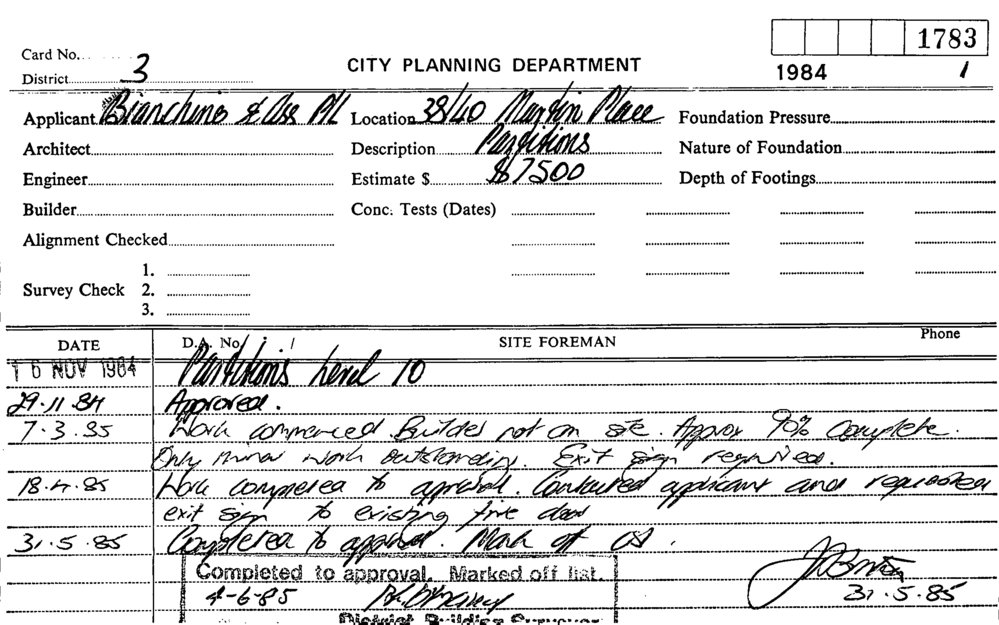 1783
Card No.
District 3
CITY PLANNING DEPARTMENT
1984 1
Applicant Bianchino & Ass P/L Location 38/40 Martin Place Foundation Pressure
Architect Description Partitions Nature of Foundation
Engineer Estimate $ $7500 Depth of Footings
Builder Conc. Tests (Dates)
Alignment Checked
1.
Survey Check 2.
3.
DATE D.A. No. / / SITE FOREMAN Phone
16 NOV 1984 Partitions Level 10
29.11.84 Approved.
7.3.85 Work commenced. Builder not on site. Approx 90% complete.
Only minor work outstanding. Exit sign required.
18.4.85 Work completed to approval. Contacted applicant and requested
exit sign to existing fire door
31.5.85 Completed to approval. Mark off
Completed to approval. Marked off list.
4-6-85
31.5.85
District Building Surveyor